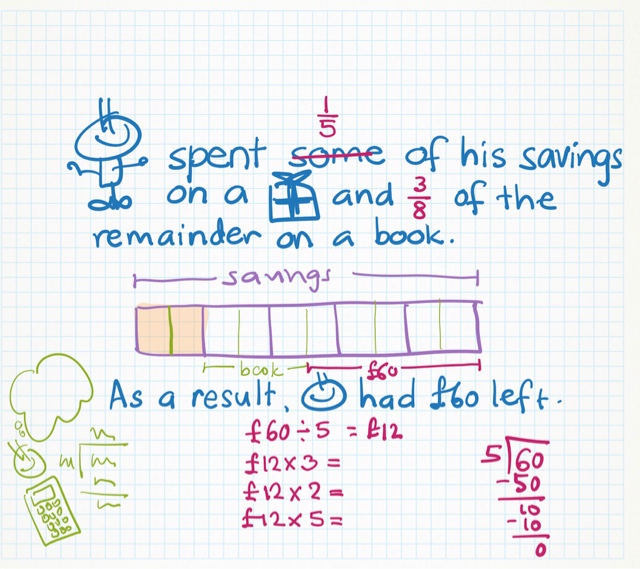 1/5
spent some of his savings
on a and 3/8 of the
remainder on a book.
savings
book £60
As a result, had £60 left.
£60 ÷ 5 = £12
£12 x 3 =
£12 x 2 =
£12 x 5 =
5 60
-50
10
-10
0